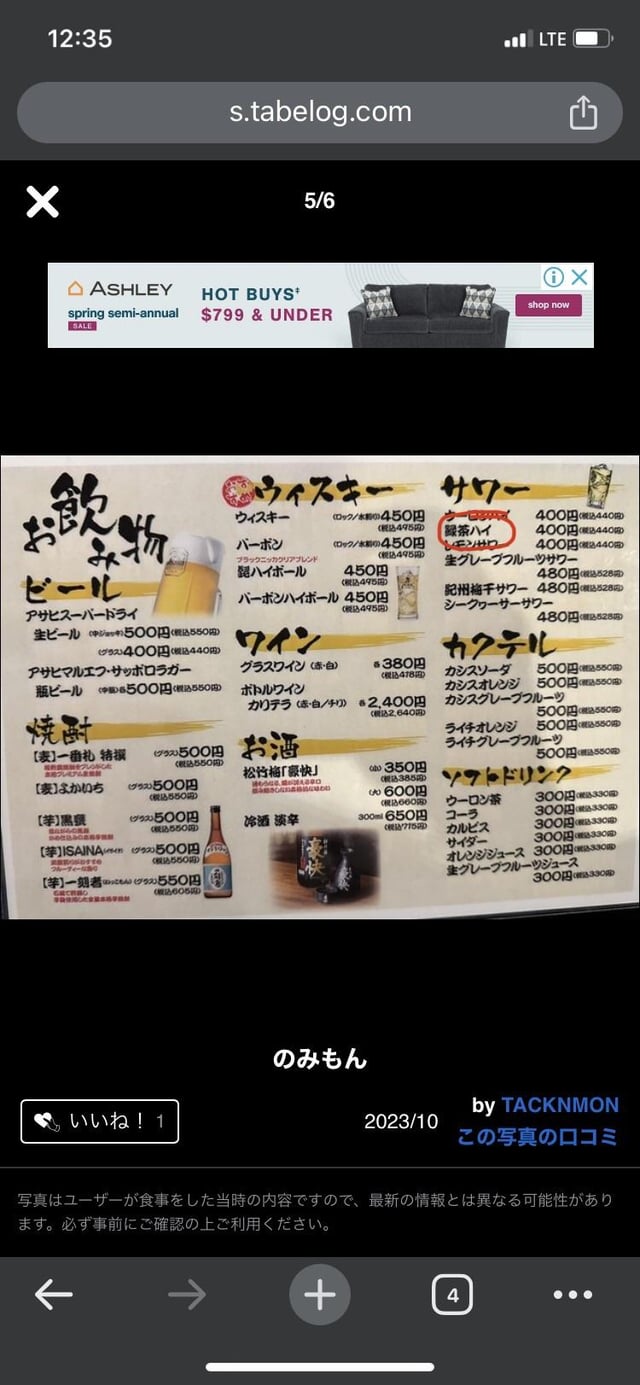 12:35
LTE
s.tabelog.com
5/6
ASHLEY
spring semi-annual
SALE
HOT BUYS‡
$799 & UNDER
shop now
お飲み物
ビール
アサヒスーパードライ
生ビール (中ジョッキ)500円(税込550円)
(グラス)400円(税込440円)
アサヒマルエフ・サッポロラガー
瓶ビール (中瓶)各500円(税込550円)
焼酎
【麦】一番札 特撰 (グラス)500円
(税込550円)
【麦】よかいち (グラス)500円
(税込550円)
【芋】黒甕 (グラス)500円
(税込550円)
【芋】ISAINA(イサイナ) (グラス)500円
(税込550円)
【芋】一刻者(いっこもん) (グラス)550円
(税込605円)
ウィスキー
ウィスキー (ロック/水割り)450円
(税込495円)
バーボン (ロック/水割り)450円
(税込495円)
ブラックニッカクリアブレンド
髭ハイボール 450円
(税込495円)
バーボンハイボール 450円
(税込495円)
ワイン
グラスワイン (赤・白) 各380円
(税込418円)
ボトルワイン
カリテラ (赤・白/チリ) 各2,400円
(税込2,640円)
お酒
松竹梅「豪快」 (小) 350円
(税込385円)
(大) 600円
(税込660円)
冷酒 淡辛 300ml 650円
(税込715円)
サワー
400円(税込440円)
緑茶ハイ 400円(税込440円)
レモンサワー 400円(税込440円)
生グレープフルーツサワー
480円(税込528円)
紀州梅干サワー 480円(税込528円)
シークヮーサーサワー
480円(税込528円)
カクテル
カシスソーダ 500円(税込550円)
カシスオレンジ 500円(税込550円)
カシスグレープフルーツ
500円(税込550円)
ライチオレンジ 500円(税込550円)
ライチグレープフルーツ
500円(税込550円)
ソフトドリンク
ウーロン茶 300円(税込330円)
コーラ 300円(税込330円)
カルピス 300円(税込330円)
サイダー 300円(税込330円)
オレンジジュース 300円(税込330円)
生グレープフルーツジュース
300円(税込330円)
のみもん
いいね！ 1
2023/10
by TACKNMON
この写真の口コミ
写真はユーザーが食事をした当時の内容ですので、最新の情報とは異なる可能性があり
ます。必ず事前にご確認の上ご利用ください。
4